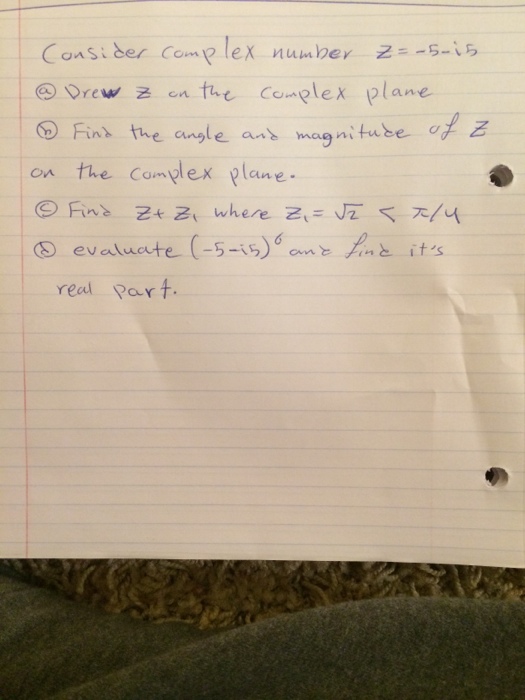 Consider complex number z = -5-i5
ⓐ Drew z on the complex plane
ⓑ Find the angle and magnitude of z
on the complex plane.
ⓒ Find z + z₁ where z₁ = √2 < π/4
ⓓ evaluate (-5-i5)⁶ and find it's
real part.